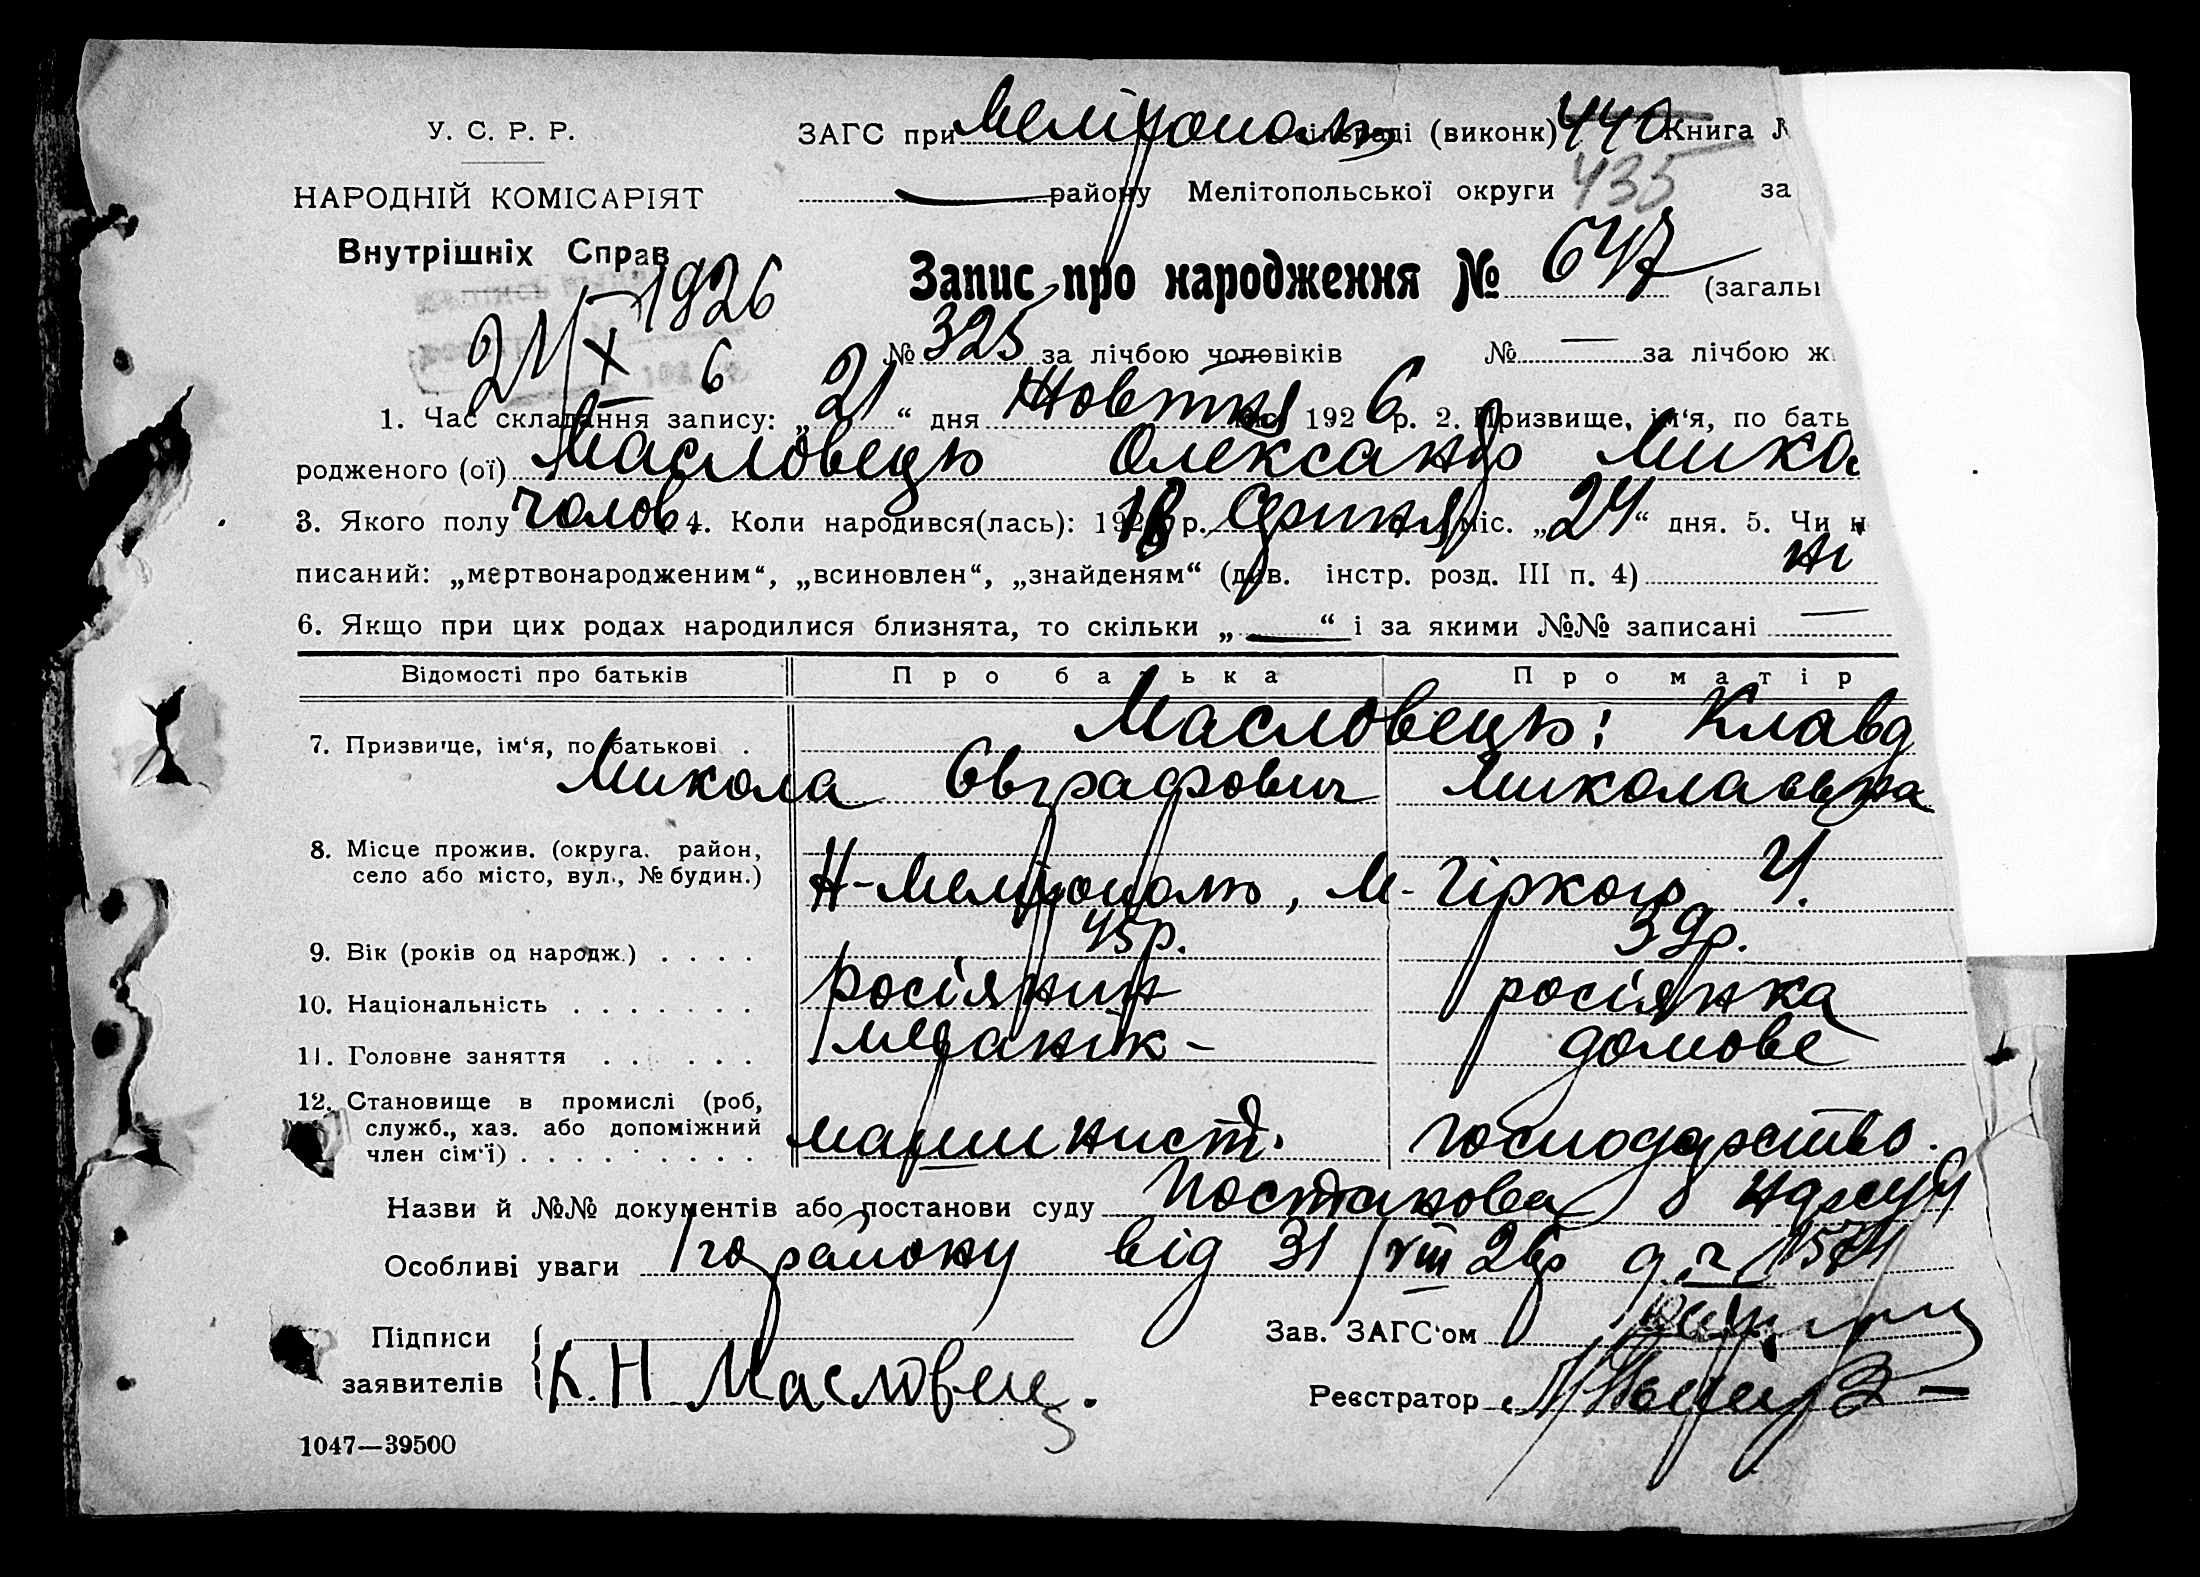 У. С. Р. Р.
ЗАГС при Мелітополь сільраді (виконк) 440 Книга
435
НАРОДНІЙ КОМІСАРІЯТ
району Мелітопольської округи за
Внутрішніх Справ
Запис про народження № 647 (загаль
21/X 1926
6
№ 325 за лічбою чоловіків № — за лічбою ж
1. Час складання запису: „21“ дня Жовтня міс. 1926 р. 2. Призвище, ім‘я, по бать
родженого (ої) Масловець Олександр Мико
3. Якого полу чолов 4. Коли народився(лась): 19 р. Серпня міс. „24“ дня. 5. Чи н
писаний: „мертвонародженим“, „всиновлен“, „знайденям“ (див. інстр. розд. III п. 4) ні
6. Якщо при цих родах народилися близнята, то скільки „—“ і за якими №№ записані —
Відомості про батьків Про батька Про матір
7. Призвище, ім‘я, по батькові . Масловець: Клавд
Микола Овграфович Миколаевна
8. Місце прожив. (округа, район,
село або місто, вул., № будин.) Н-Мелітополь, М-Гіркого 4.
9. Вік (років од народж.) . . . . 45р. 39р.
10. Національність . . . . . . . росіянин росіянка
11. Головне заняття . . . . . . механік - домове
12. Становище в промислі (роб,
служб., хаз. або допоміжний
член сім‘ї) . . . . . . . . . машинист. господарство.
Назви й №№ документів або постанови суду Постанова 8 Нарсуд
Особливі уваги го району від 31/VIII 26р
Підписи
Зав. ЗАГС‘ом
заявителів К. Н Масловец.
Реєстратор
1047—39500